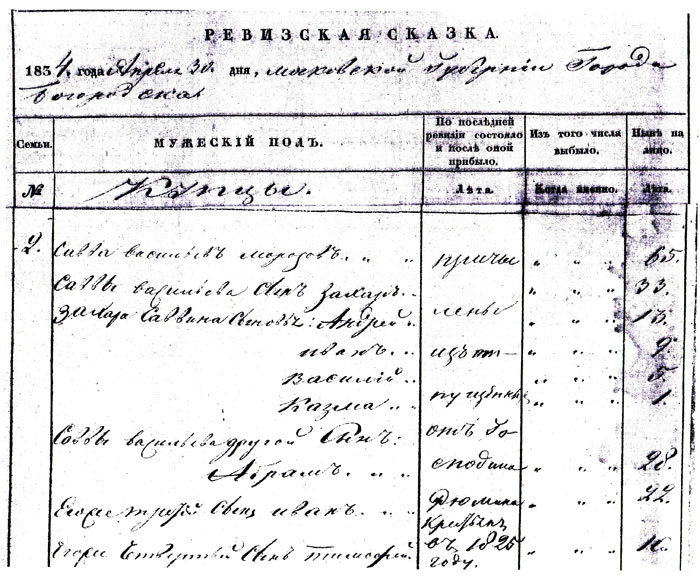 РЕВИЗСКАЯ СКАЗКА.
1834, года Апреля 30. дня, Московской Губерніи Города
Богородска
Семьи. МУЖЕСКІЙ ПОЛЪ. По последней ревизіи состояло и послѣ оной прибыло. Изъ того числа выбыло. Нынѣ на лицо.
№ Купцы. Лѣта. Когда именно. Лѣта.
2. Савва васильевъ морозовъ. " " причи " " " 65.
Саввы васильева Сынъ Захаръ. " " " 33.
Захара Саввина Сыновья: Андрей " лены " " " 13.
иванъ. " " изъ от- " " " 9.
Василій " " " " 5.
Казма " " пущенных " " " 1.
Саввы васильева другой Сынъ: отъ Го
Абрамъ. " " сподина " " " 28.
Егоже третій Сынъ иванъ. " " Рюмина " " " 22.
крестьянъ
Егоже Четвертый Сынъ тимофей въ 1825 " " " 10.
году.